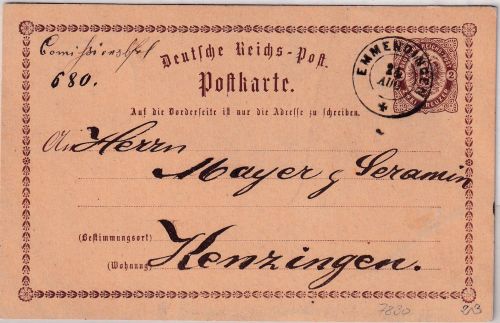 680.
Deutsche Reichs-Post.
Postkarte.
EMMENDINGEN
AUG
2
Auf die Vorderseite ist nur die Adresse zu schreiben.
An Herrn
Mayer
(Bestimmungsort)
(Wohnung)
Kenzingen.
7830
2/3